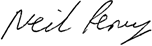 Neil Perry